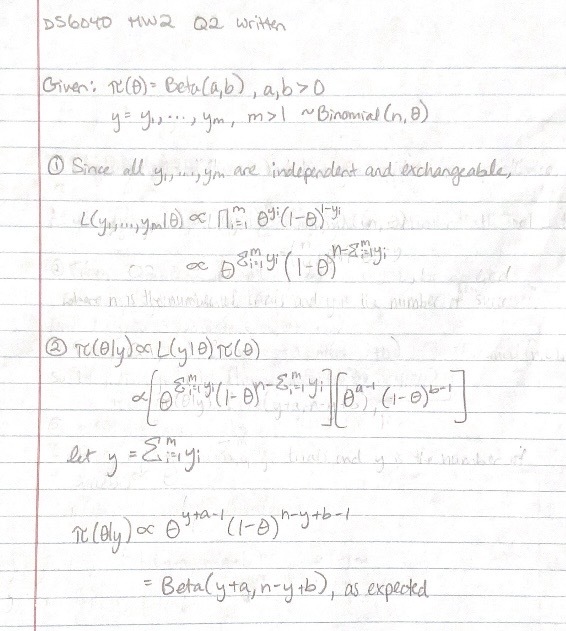 DS6040 HW2 Q2 written
Given: π(θ) = Beta(a,b), a,b>0
y = y₁,…, yₘ, m>1 ~Binomial(n,θ)
① Since all y₁,…,yₘ are independent and exchangeable,
L(y₁,…,yₘ|θ) ∝ Πᵢ₌₁ᵐ θ^yᵢ (1-θ)^1-yᵢ
∝ θ^Σᵢ₌₁ᵐ yᵢ (1-θ)^n-Σᵢ₌₁ᵐ yᵢ
② π(θ|y) ∝ L(y|θ)π(θ)
∝ [θ^Σᵢ₌₁ᵐ yᵢ (1-θ)^n-Σᵢ₌₁ᵐ yᵢ] [θ^a-1 (1-θ)^b-1]
let y = Σᵢ₌₁ᵐ yᵢ
π(θ|y) ∝ θ^y+a-1 (1-θ)^n-y+b-1
= Beta(y+a, n-y+b), as expected